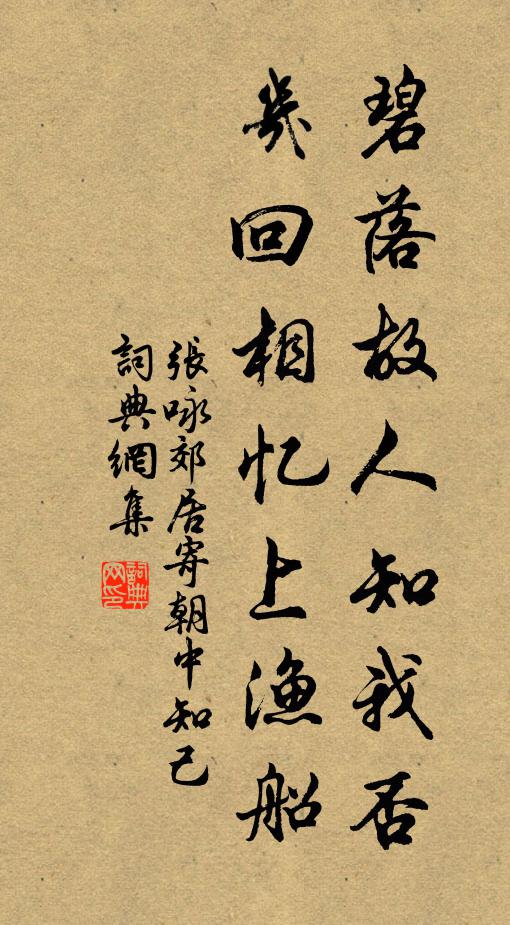 碧落故人知我否
幾回相忆上漁船
張咏郊居寄朝中知己
詞典網集
詞典網印